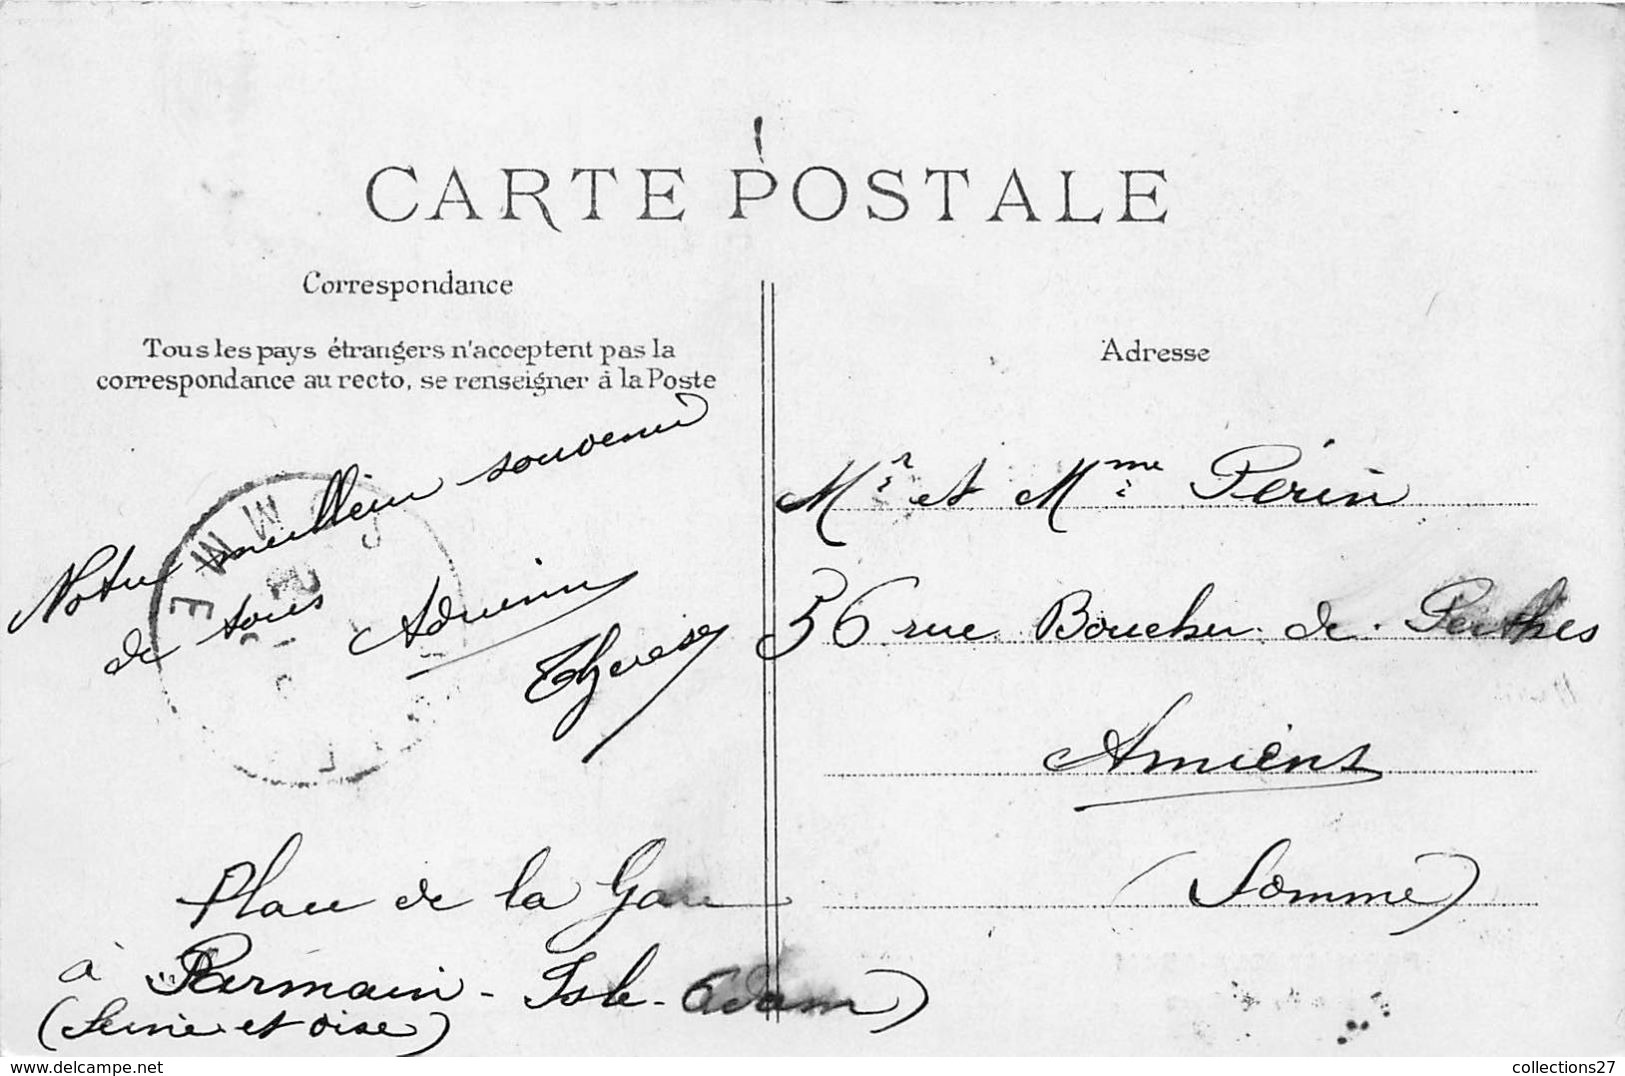 CARTE POSTALE
Correspondance
Tous les pays étrangers n'acceptent pas la
correspondance au recto, se renseigner à la Poste
Notre meilleur souvenir
de tous
Adrienne
Therese
Place de la Gare
à Parmain - Isle-Adam)
(Seine et oise)
Adresse
Mr et Mme Périn
36 rue Boucher de Perthes
Amiens
(Somme)
SOMME
www.delcampe.net
collections27